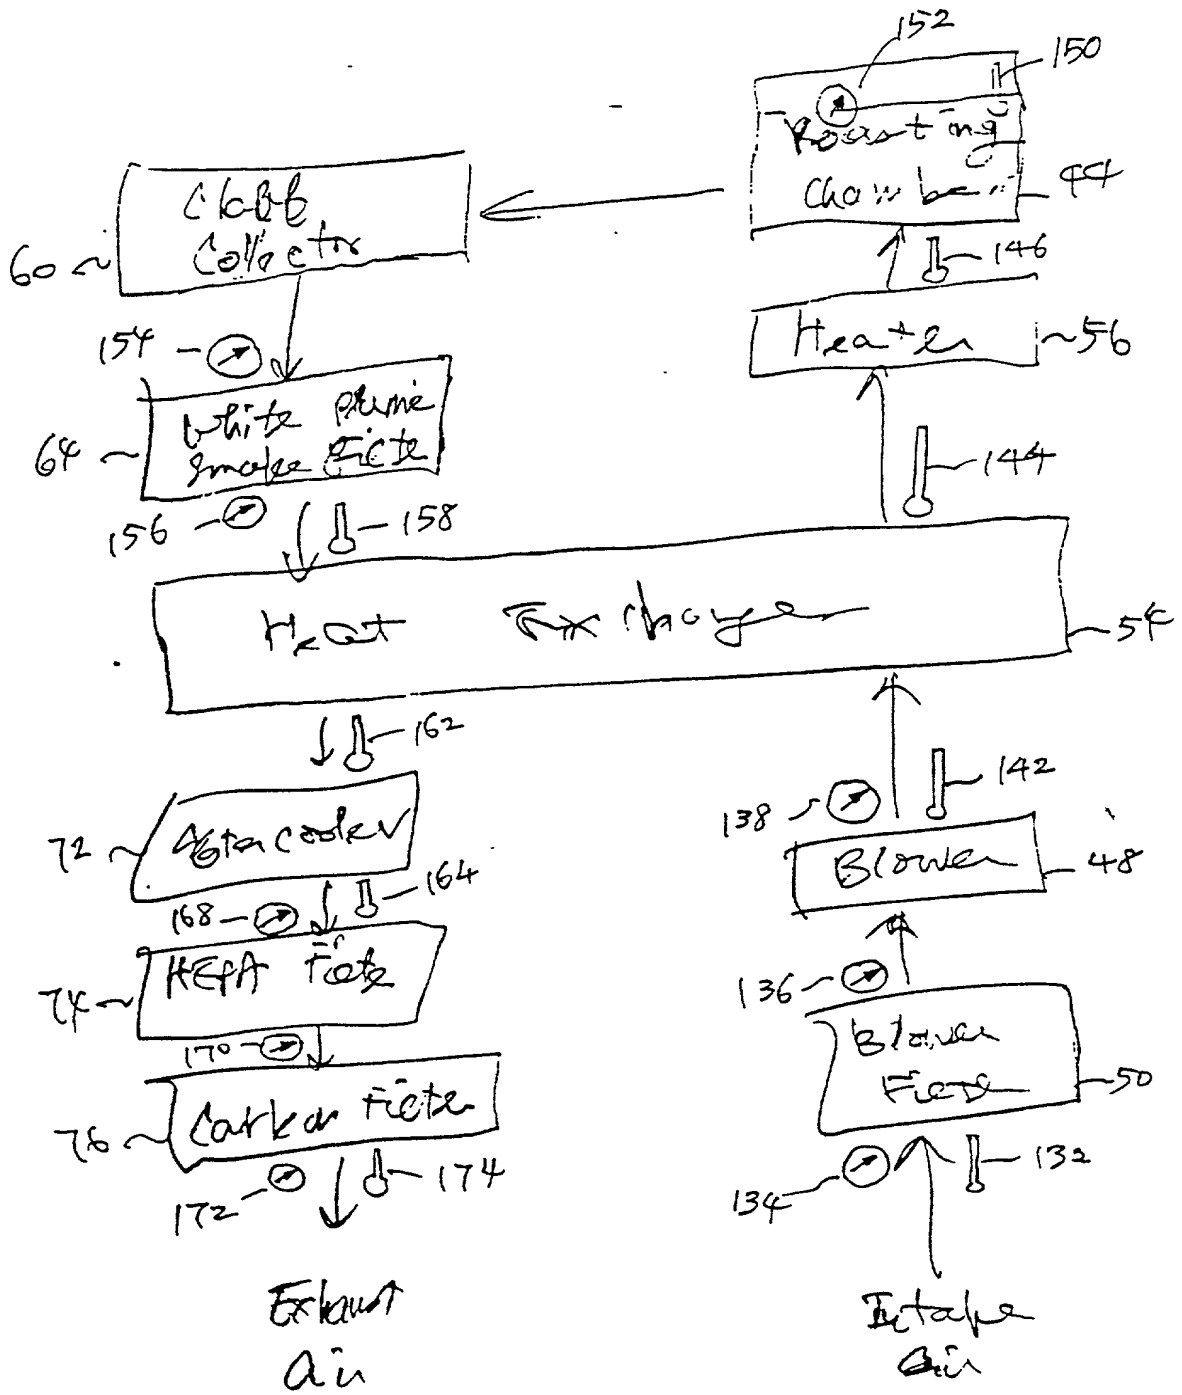 152
150
Roasting
Chamber
44
Chaff
Collector
60
146
Heater
56
154
White Plume
Smoke Filter
64
144
156
158
Heat Exchanger
54
162
142
138
Aftercooler
72
Blower
48
164
168
HEPA Filter
74
136
170
Blower
Filter
50
Carbon Filter
76
132
134
174
172
Exhaust
Air
Intake
Air